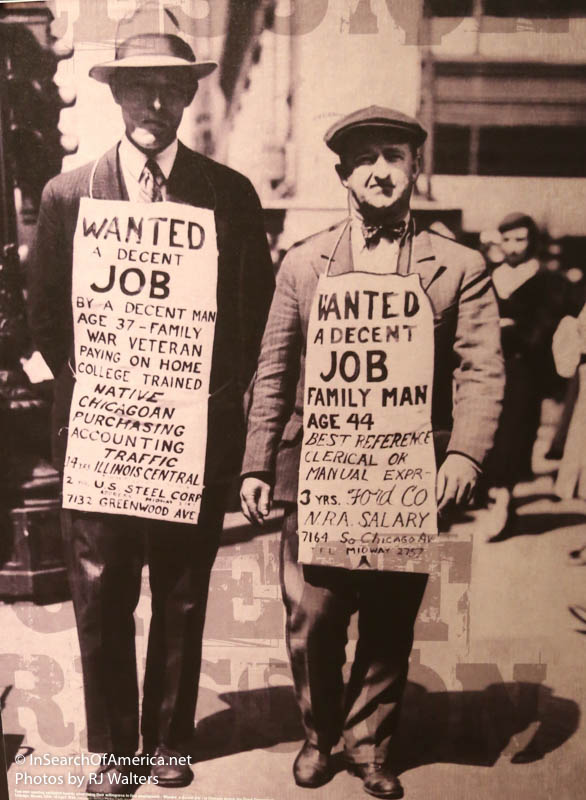 WANTED
A DECENT
JOB
BY A DECENT MAN
AGE 37 - FAMILY
WAR VETERAN
PAYING ON HOME
COLLEGE TRAINED
NATIVE
CHICAGOAN
PURCHASING
ACCOUNTING
TRAFFIC
14 YRS ILLINOIS CENTRAL
2 U.S. STEEL CORP
7132 GREENWOOD AVE
WANTED
A DECENT
JOB
FAMILY MAN
AGE 44
BEST REFERENCE
CLERICAL OR
MANUAL EXPR-
3 YRS. FORD CO
N.R.A. SALARY
7164 So CHICAGO AV
MIDWAY 2757
© InSearchOfAmerica.net
Photos by RJ Walters